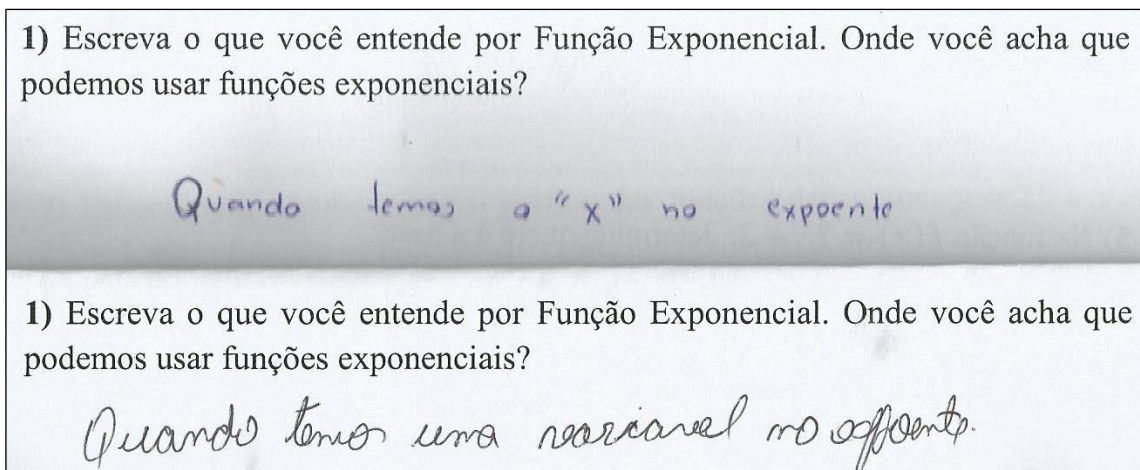 1) Escreva o que você entende por Função Exponencial. Onde você acha que
podemos usar funções exponenciais?
Quando temos o "x" no expoente
1) Escreva o que você entende por Função Exponencial. Onde você acha que
podemos usar funções exponenciais?
Quando temos uma variavel no expoente.